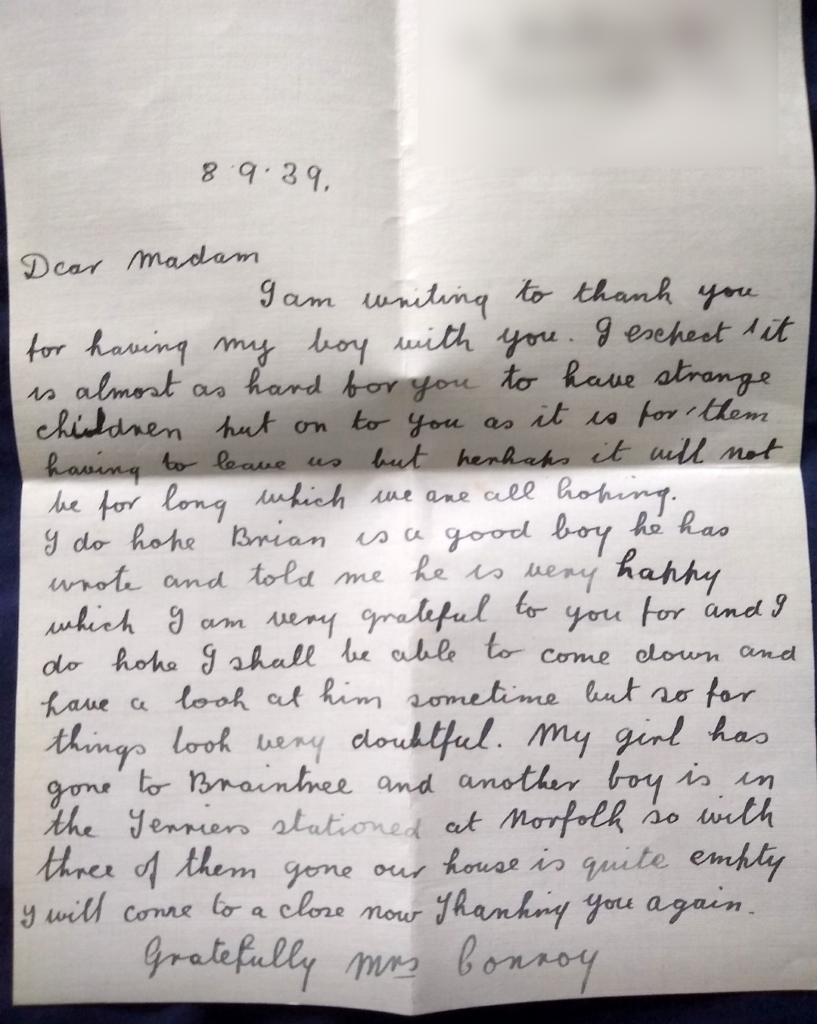 8.9.39.
Dear Madam
I am writing to thank you
for having my boy with you. I exchect it
is almost as hard for you to have strange
children put on to you as it is for them
having to leave us but perhaps it will not
be for long which we are all hoping.
I do hope Brian is a good boy he has
wrote and told me he is very happy
which I am very grateful to you for and I
do hope I shall be able to come down and
have a look at him sometime but so far
things look very doubtful. My girl has
gone to Braintree and another boy is in
the Terriers stationed at Norfolk so with
three of them gone our house is quite empty
I will come to a close now Thanking you again.
Gratefully Mrs Conroy